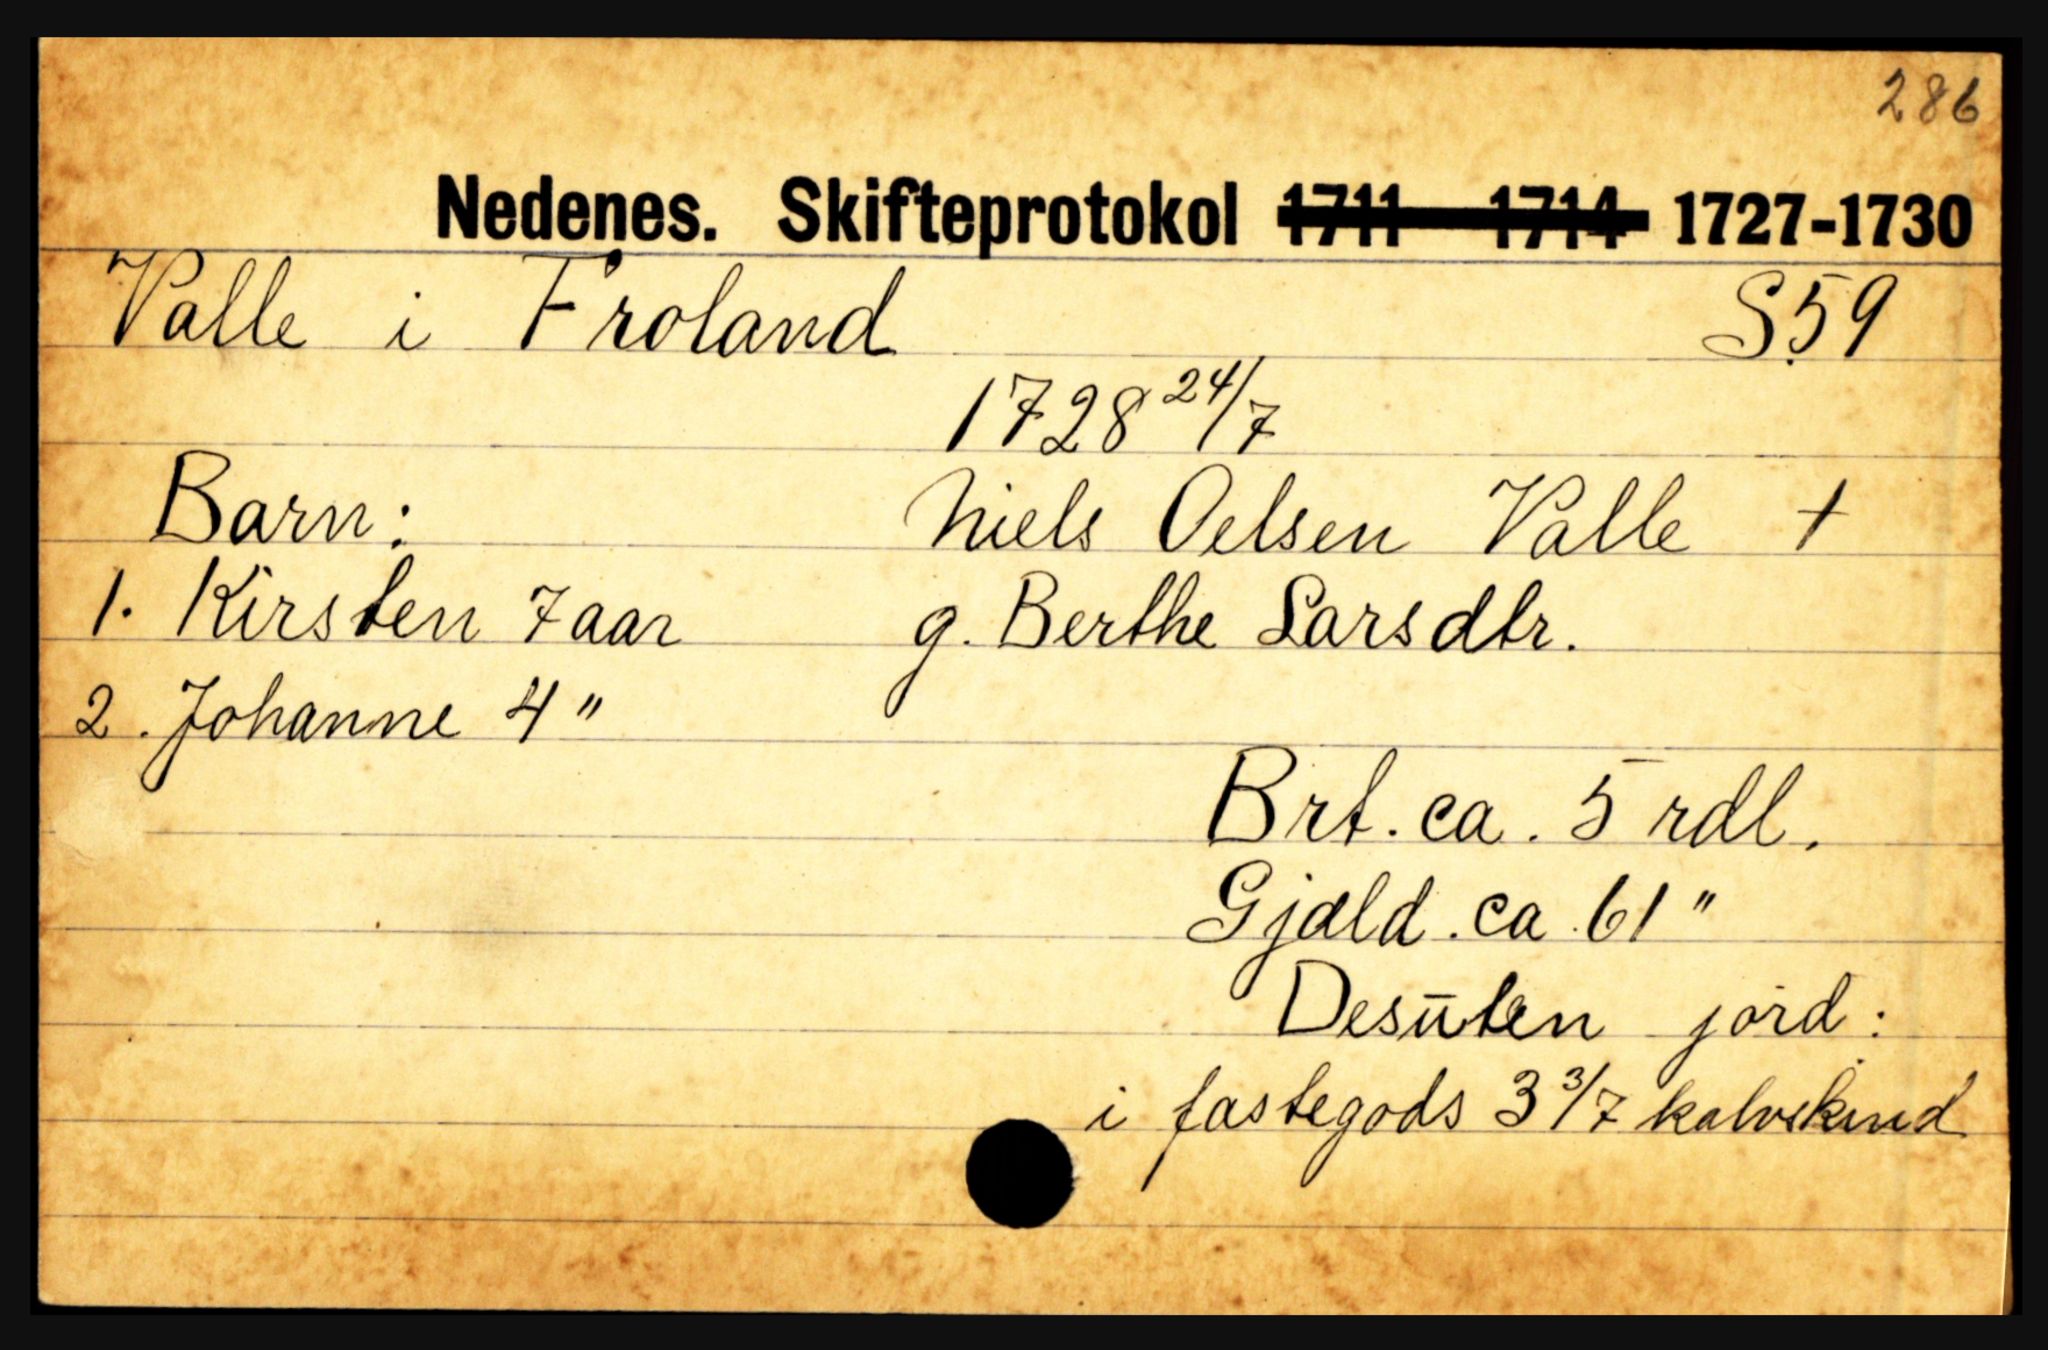 286
Nedenes. Skifteprotokol 1711 1714 1727-1730
Valle i Froland S.59
1728 24/7
Barn: Niels Oelsen Valle †
1. Kirsten 7 aar g. Berthe Larsdtr.
2. Johanne 4 "
Brt. ca. 5 rdl.
Gjæld. ca. 61 "
Desūten jord:
i fastegods 3 3/7 kalvskind